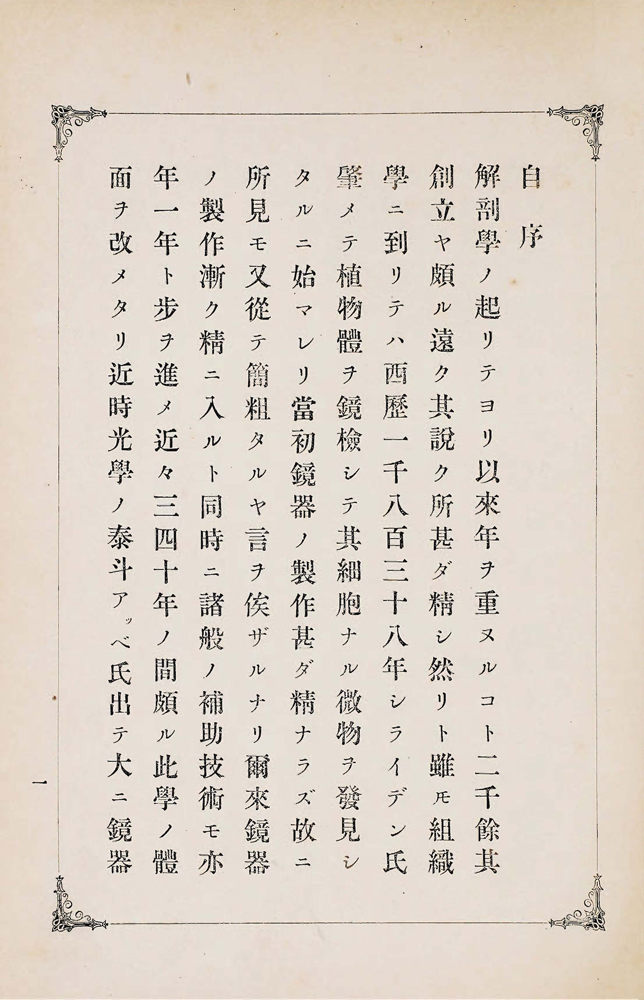 自序
解剖學ノ起リテヨリ以來年ヲ重ヌルコト二千餘其
創立ヤ頗ル遠ク其說ク所甚ダ精シ然リト雖𪜈組織
學ニ到リテハ西歷一千八百三十八年シライデン氏
肇メテ植物體ヲ鏡檢シテ其細胞ナル微物ヲ發見シ
タルニ始マレリ當初鏡器ノ製作甚ダ精ナラズ故ニ
所見モ又從テ簡粗タルヤ言ヲ俟ザルナリ爾來鏡器
ノ製作漸ク精ニ入ルト同時ニ諸般ノ補助技術モ亦
年一年ト步ヲ進メ近々三四十年ノ間頗ル此學ノ體
面ヲ改メタリ近時光學ノ泰斗アッベ氏出テ大ニ鏡器
一